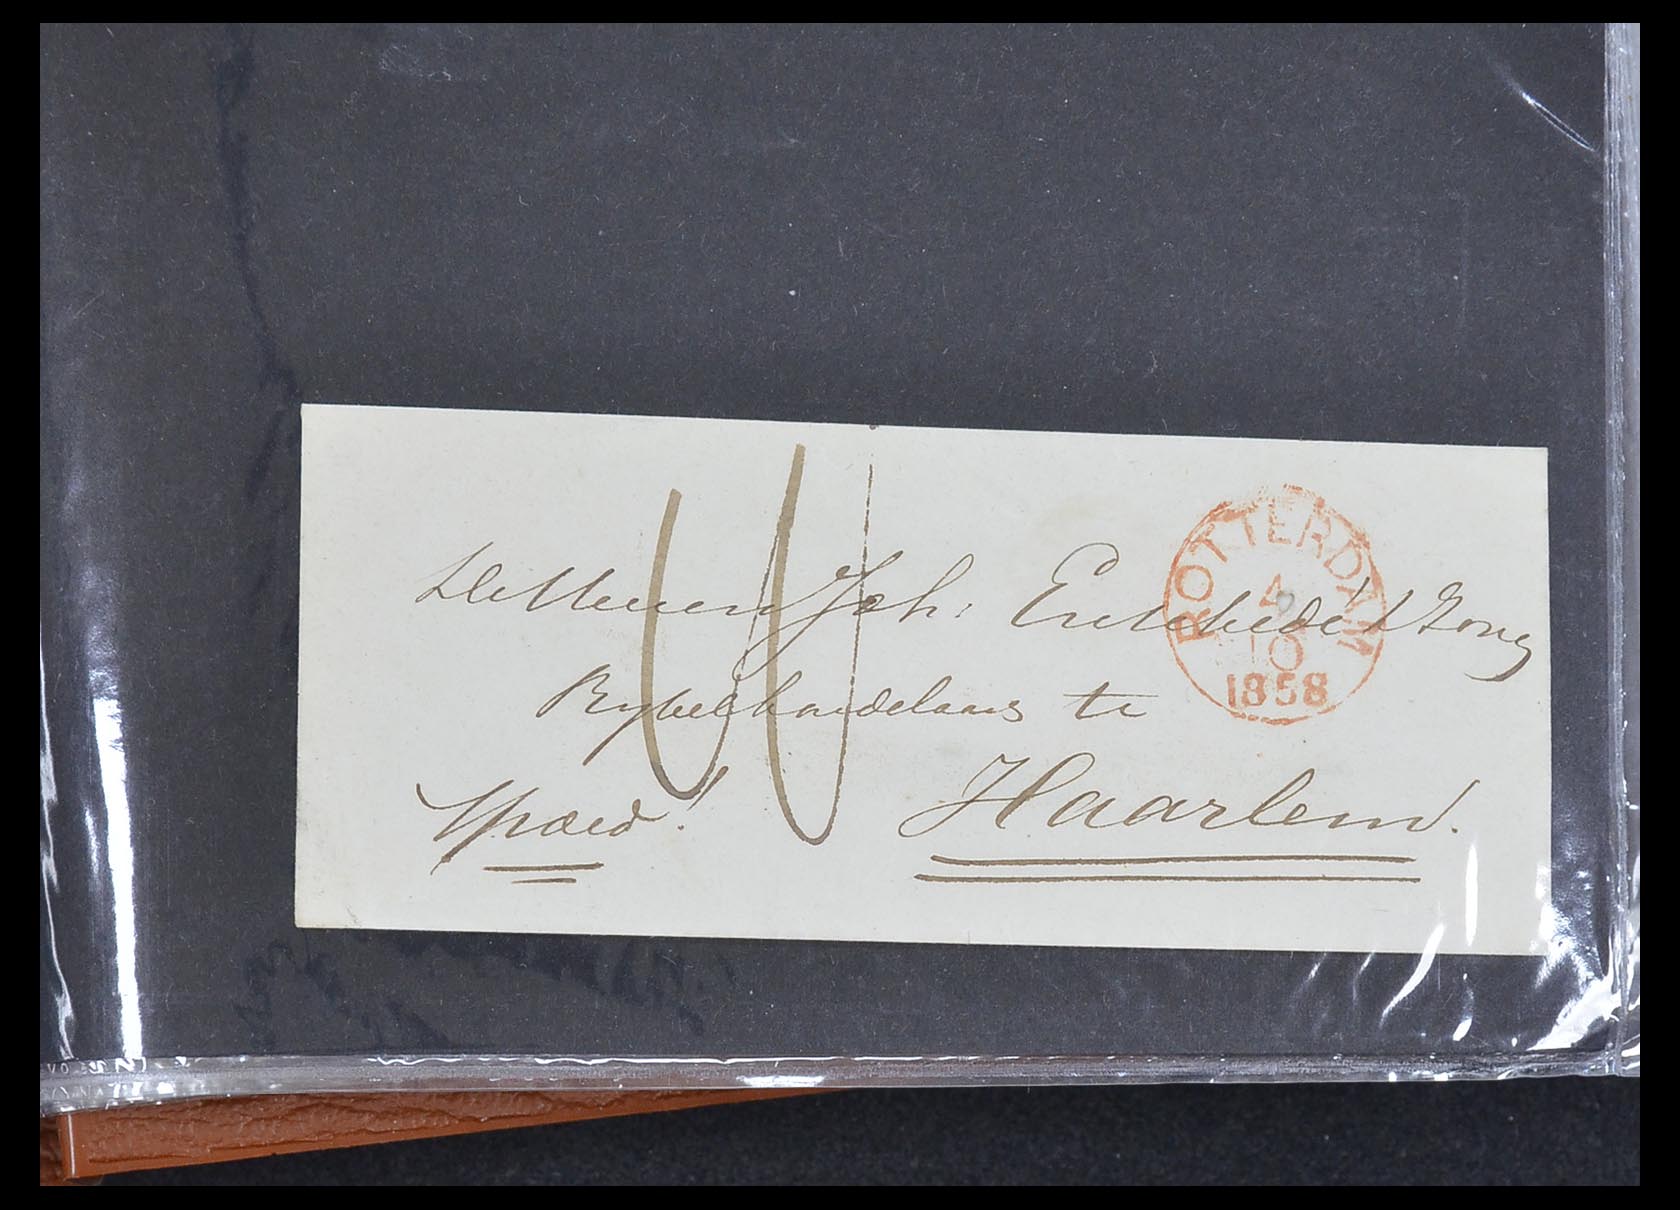 De Heeren Joh: Enschedé & Zonen
Bybelhandelaars te
Haarlem.
Spoed!
ROTTERDAM
4
10
1858